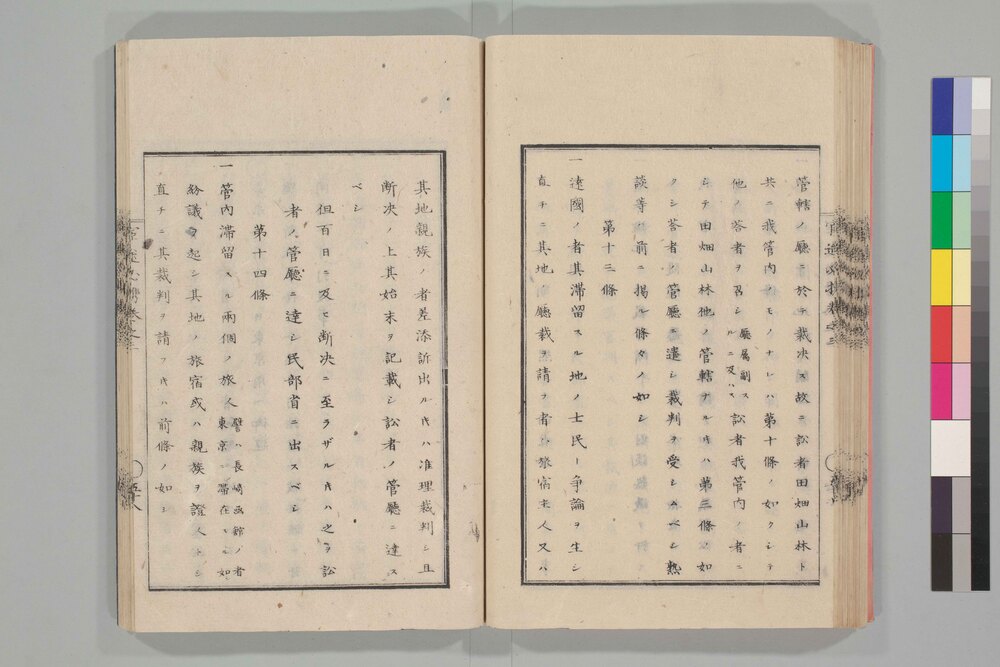 一管轄ノ廳ニ於テ裁决ス故ニ訟者田畑山林ト
共ニ我管内ノモノナレハ第十條ノ如クシテ
他ノ答者ヲ召シルニ及ハス 廳属副 訟者我管内ノ者ニ
シテ田畑山林他ノ管轄ナル氏ハ第三條ノ如
クシ答者ノ管廳ニ遣シ裁判ヲ受シムベシ熟
談等ハ前ニ掲ル條々ノ如シ
第十三條
一遠國ノ者其滞留スル地ノ士民ト争論ヲ生シ
直チニ其地ノ廳裁ヲ請フ者ハ旅宿主人又ハ
其地親族ノ者差添訴出ル氏ハ准理裁判シ且
断决ノ上其始末ヲ記載シ訟者ノ管廳ニ達ス
ベシ
但百日ニ及ヒ断决ニ至ラザル氏ハ之ヲ訟
者ノ管廳ニ達シ民部省ニ出スベシ
第十四條
一管内滞留スル兩個ノ旅人 譬ハ長崎函館ノ者東京ニ滞在スル如シ
紛議ヲ起シ其地ノ旅宿或ハ親族ヲ證人トシ
直チニ其裁判ヲ請フ氏ハ前條ノ如シ